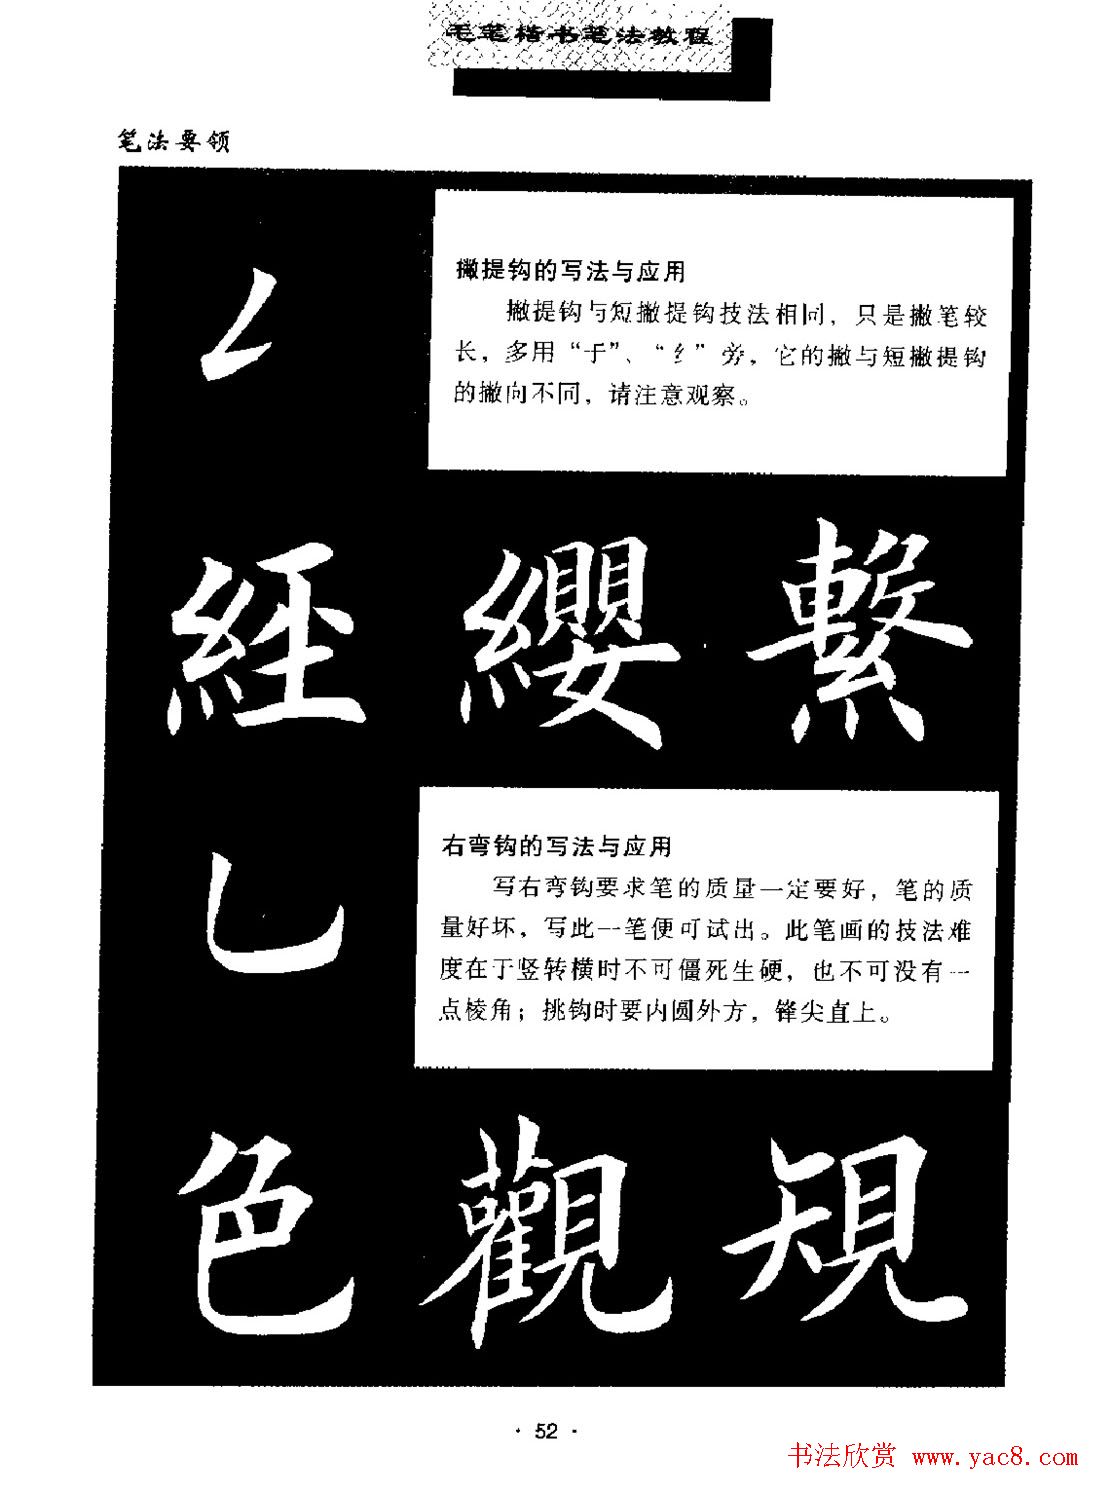 毛笔楷书笔法教程
笔法要领
撇提钩的写法与应用
撇提钩与短撇提钩技法相同，只是撇笔较
长，多用“于”、“纟”旁，它的撇与短撇提钩
的撇向不同，请注意观察。
經 纓 繫
右弯钩的写法与应用
写右弯钩要求笔的质量一定要好，笔的质
量好坏，写此一笔便可试出。此笔画的技法难
度在于竖转横时不可僵死生硬，也不可没有一
点棱角；挑钩时要内圆外方，锋尖直上。
色 觀 規
· 52 ·
书法欣赏 www.yac8.com